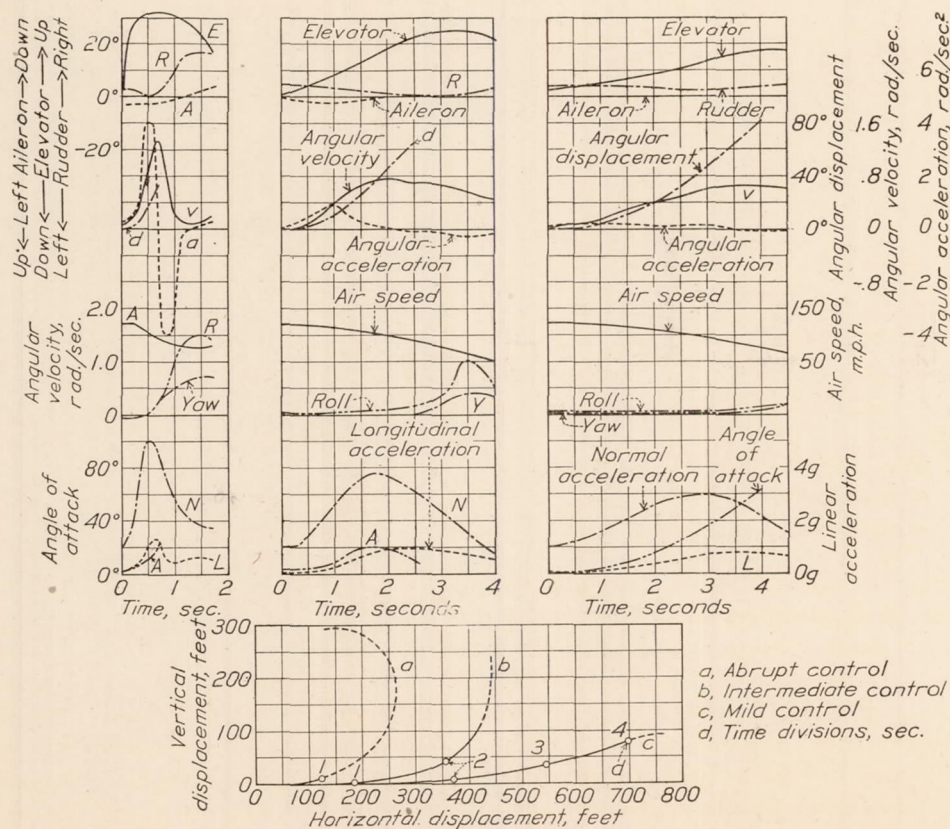 20°
0°
-20°
Up<-Left Aileron->Down
Down<-Elevator->Up
Left<-Rudder->Right
E
R
A
v
d
a
2.0
1.0
0
Angular
velocity,
rad./sec.
A
R
Yaw
80°
40°
0°
Angle of
attack
N
A
L
0 1 2
Time, sec.
Elevator
R
Aileron
Angular
velocity
d
Angular
acceleration
Air speed
Roll
Y
Longitudinal
acceleration
N
A
0 1 2 3 4
Time, seconds
Elevator
Aileron
Rudder
Angular
displacement
v
Angular
acceleration
Air speed
Roll
Yaw
Normal
acceleration
Angle
of
attack
L
0 1 2 3
Time, seconds
80°
40°
0°
Angular displacement
1.6
.8
0
-.8
Angular velocity, rad./sec.
6
4
2
0
-2
-4
Angular acceleration, rad./sec.²
150
50
Air speed,
m.p.h.
4g
2g
0g
Linear
acceleration
300
200
100
0
Vertical
displacement, feet
a
b
1
1
2
3
4
c
d
0 100 200 300 400 500 600 700 800
Horizontal displacement, feet
a, Abrupt control
b, Intermediate control
c, Mild control
d, Time divisions, sec.